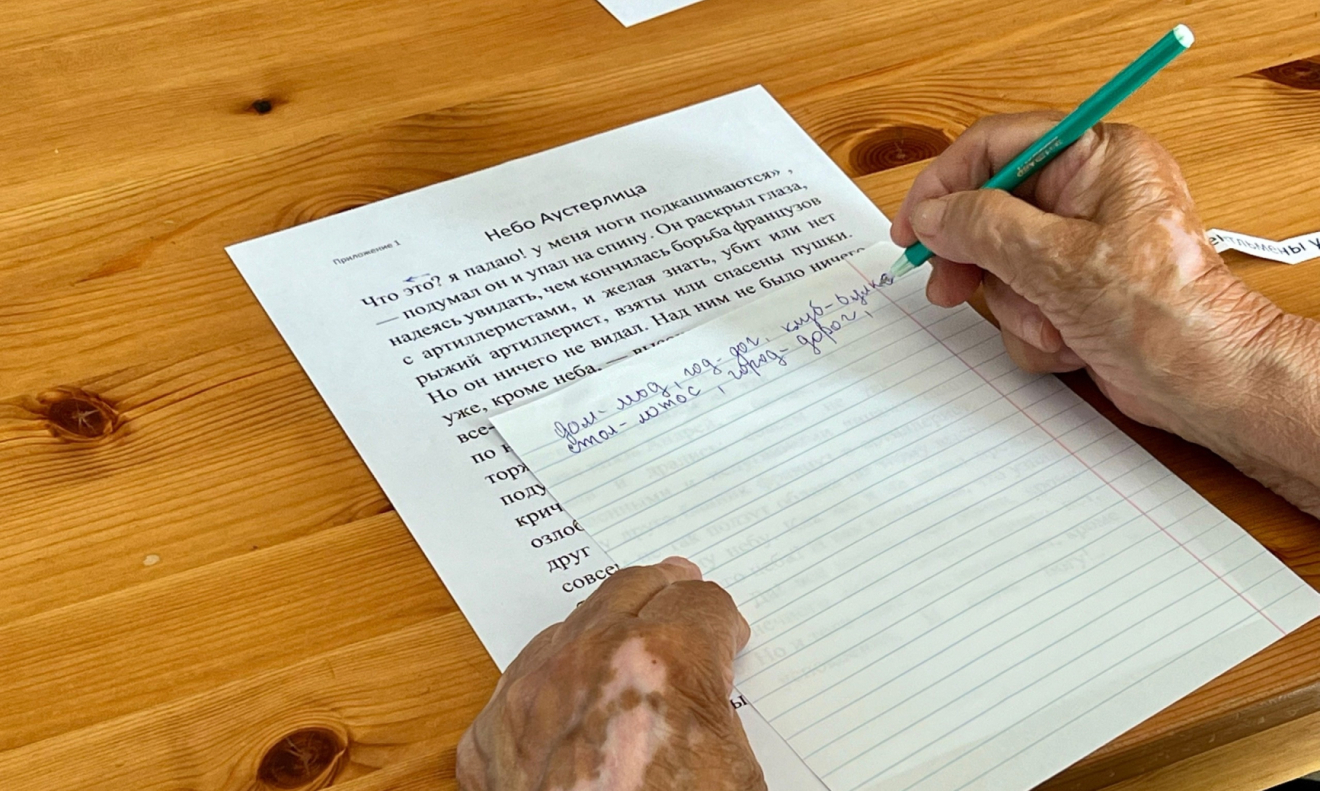 Приложение 1
Небо Аустерлица
Что это? я падаю! у меня ноги подкашиваются» ,
— подумал он и упал на спину. Он раскрыл глаза,
надеясь увидать, чем кончилась борьба французов
с артиллеристами, и желая знать, убит или нет
рыжий артиллерист, взяты или спасены пушки.
Но он ничего не видал. Над ним не было ничего
уже, кроме неба, —
все-
по
друг
дом- мод, год- дог, клуб-
стол- лотос, город- дорог,